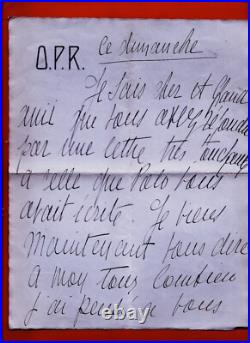 O.P.R. ce dimanche
Je sais cher et grand
ami que vous avez répondu
par une lettre très touchante
à celle que Polo vous
avait écrite. Je viens
maintenant vous dire
à mon tour combien
j'ai pensé à vous